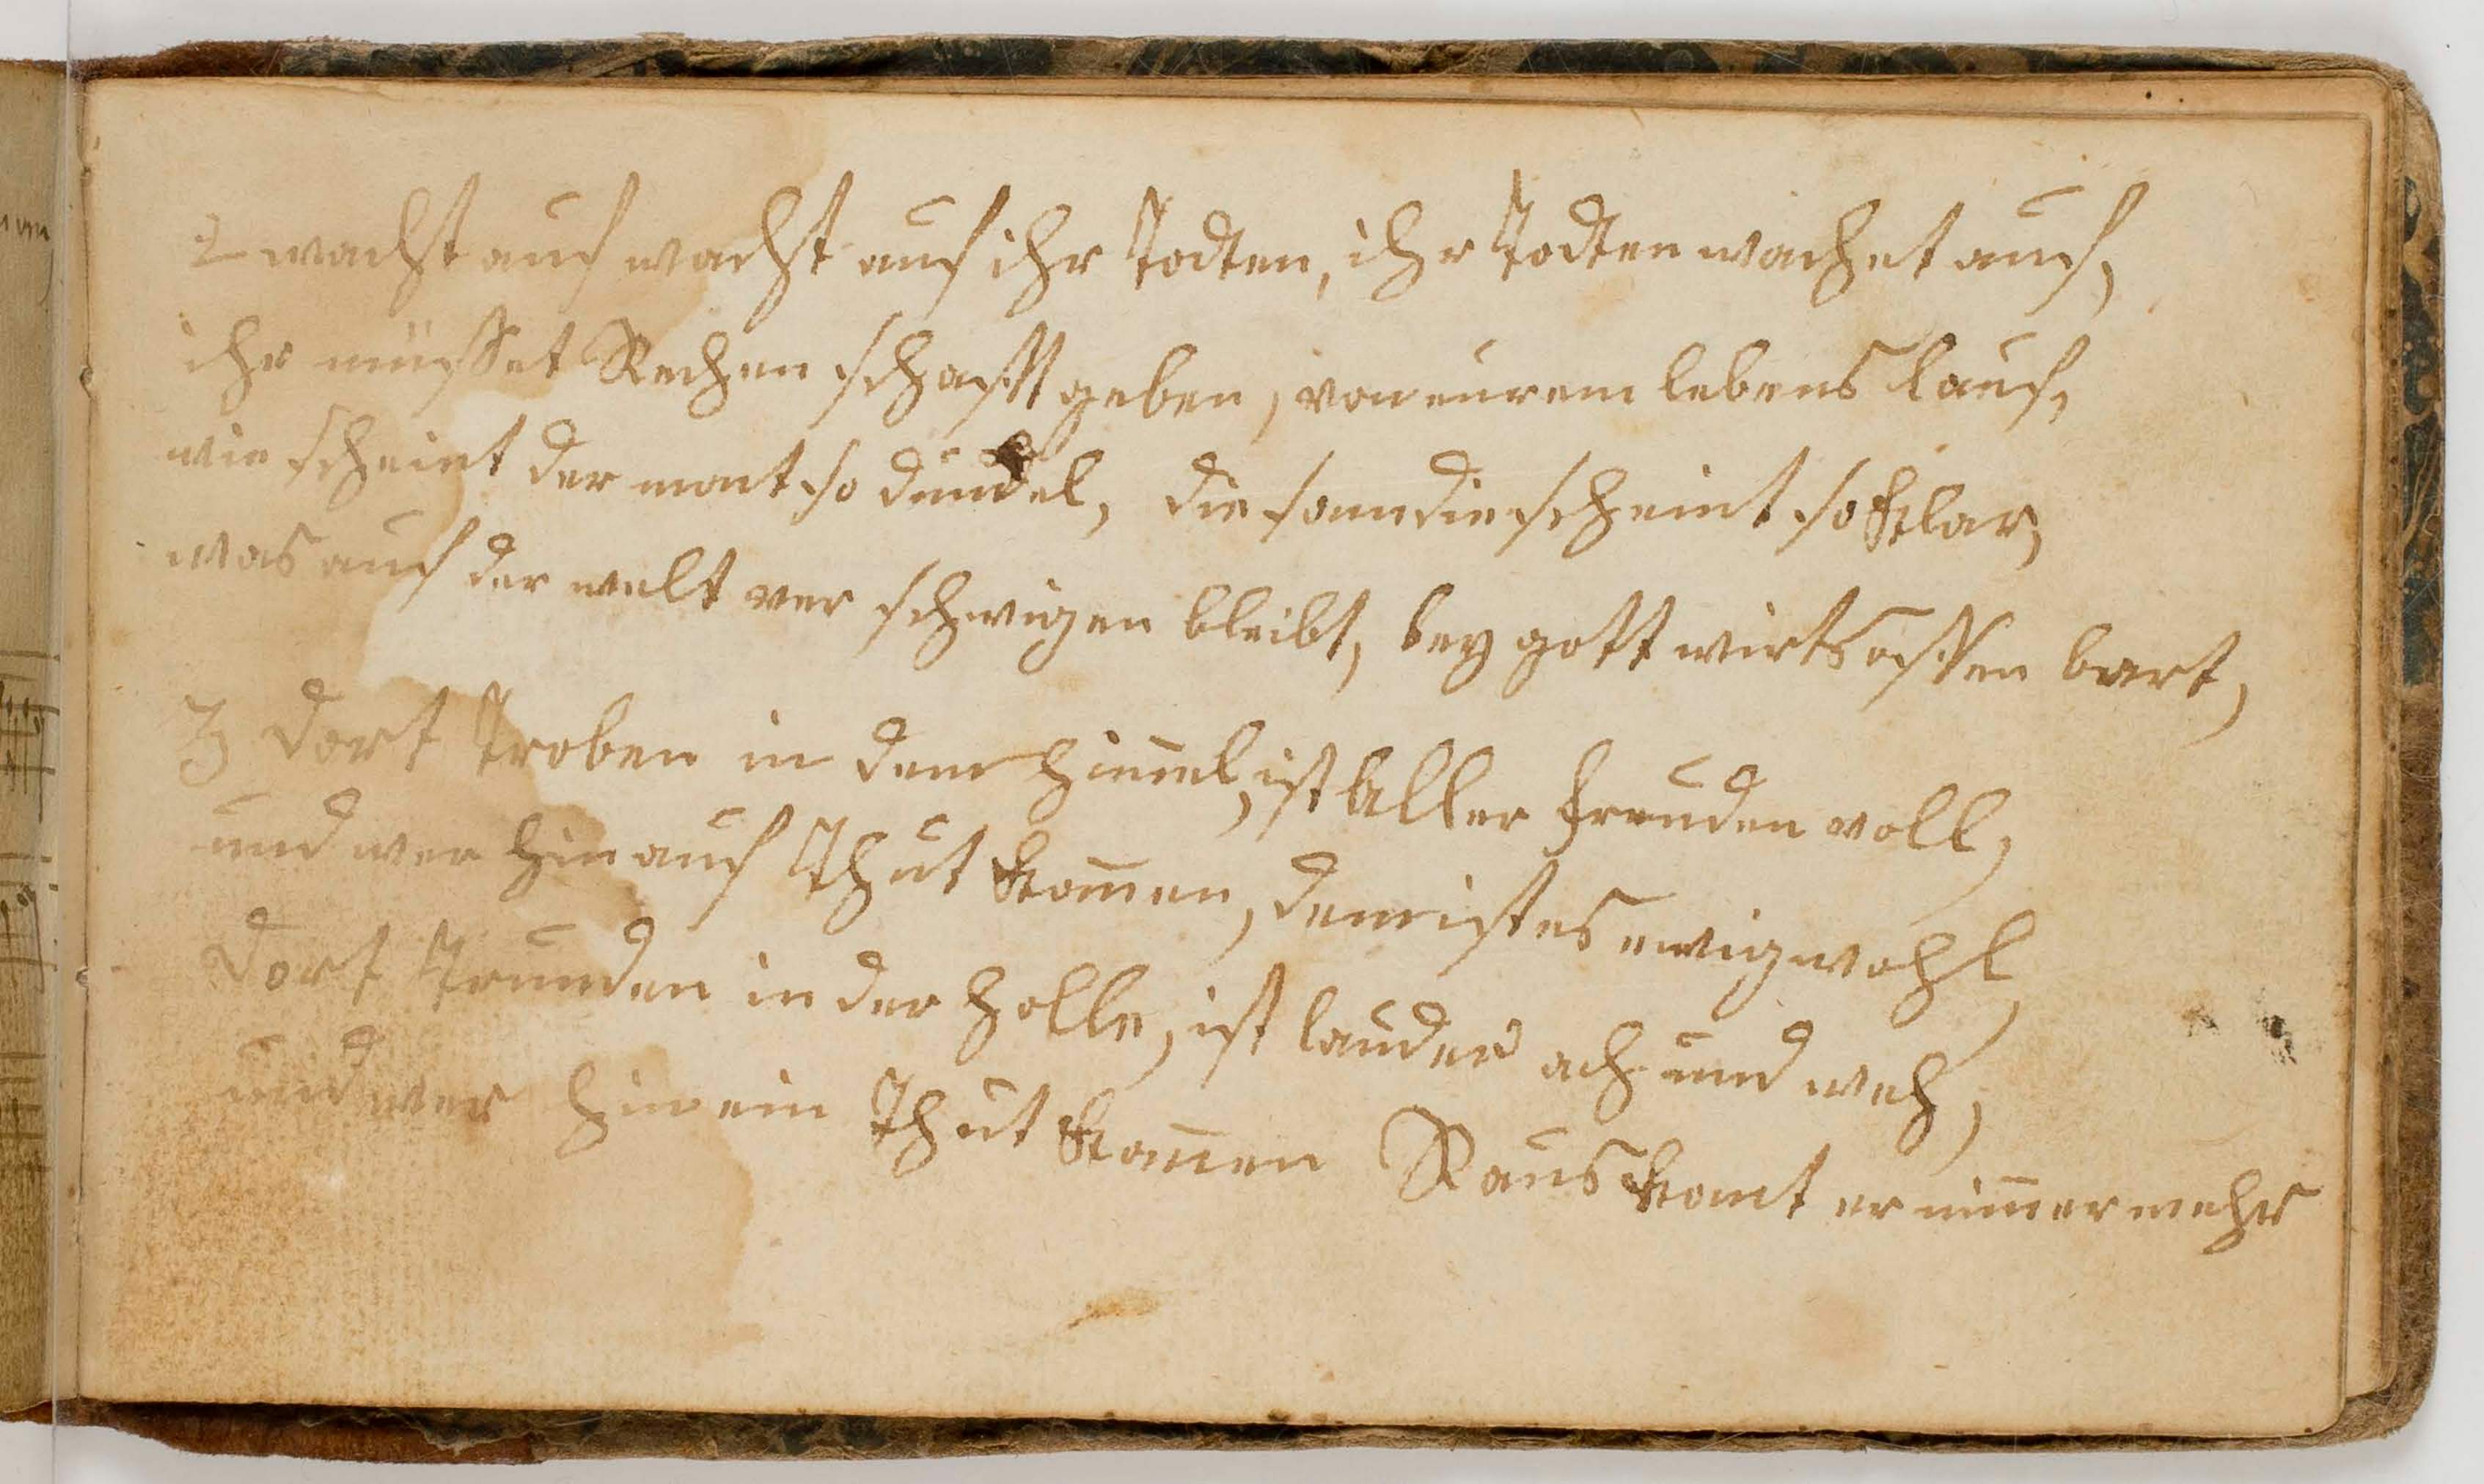 2 wachst auf wachst auf ihr Todten, ihr Todten wachet auf,
ihr müsset Rechen schafft geben, von eurem lebens lauf,
wie scheint der mont so dunckel, die sonn die scheint so klar,
was auf der welt ver schwigen bleibt, bey gott wirts offen bart,
3 dort Troben in dem himel, ist Aller freuden voll,
und wer hin auf Thut komen, dem ist es ewig wohl,
dort Trunden in der holle, ist lauder ach und weh,
und wer hin ein Thut komen Raus komt er nimermehr